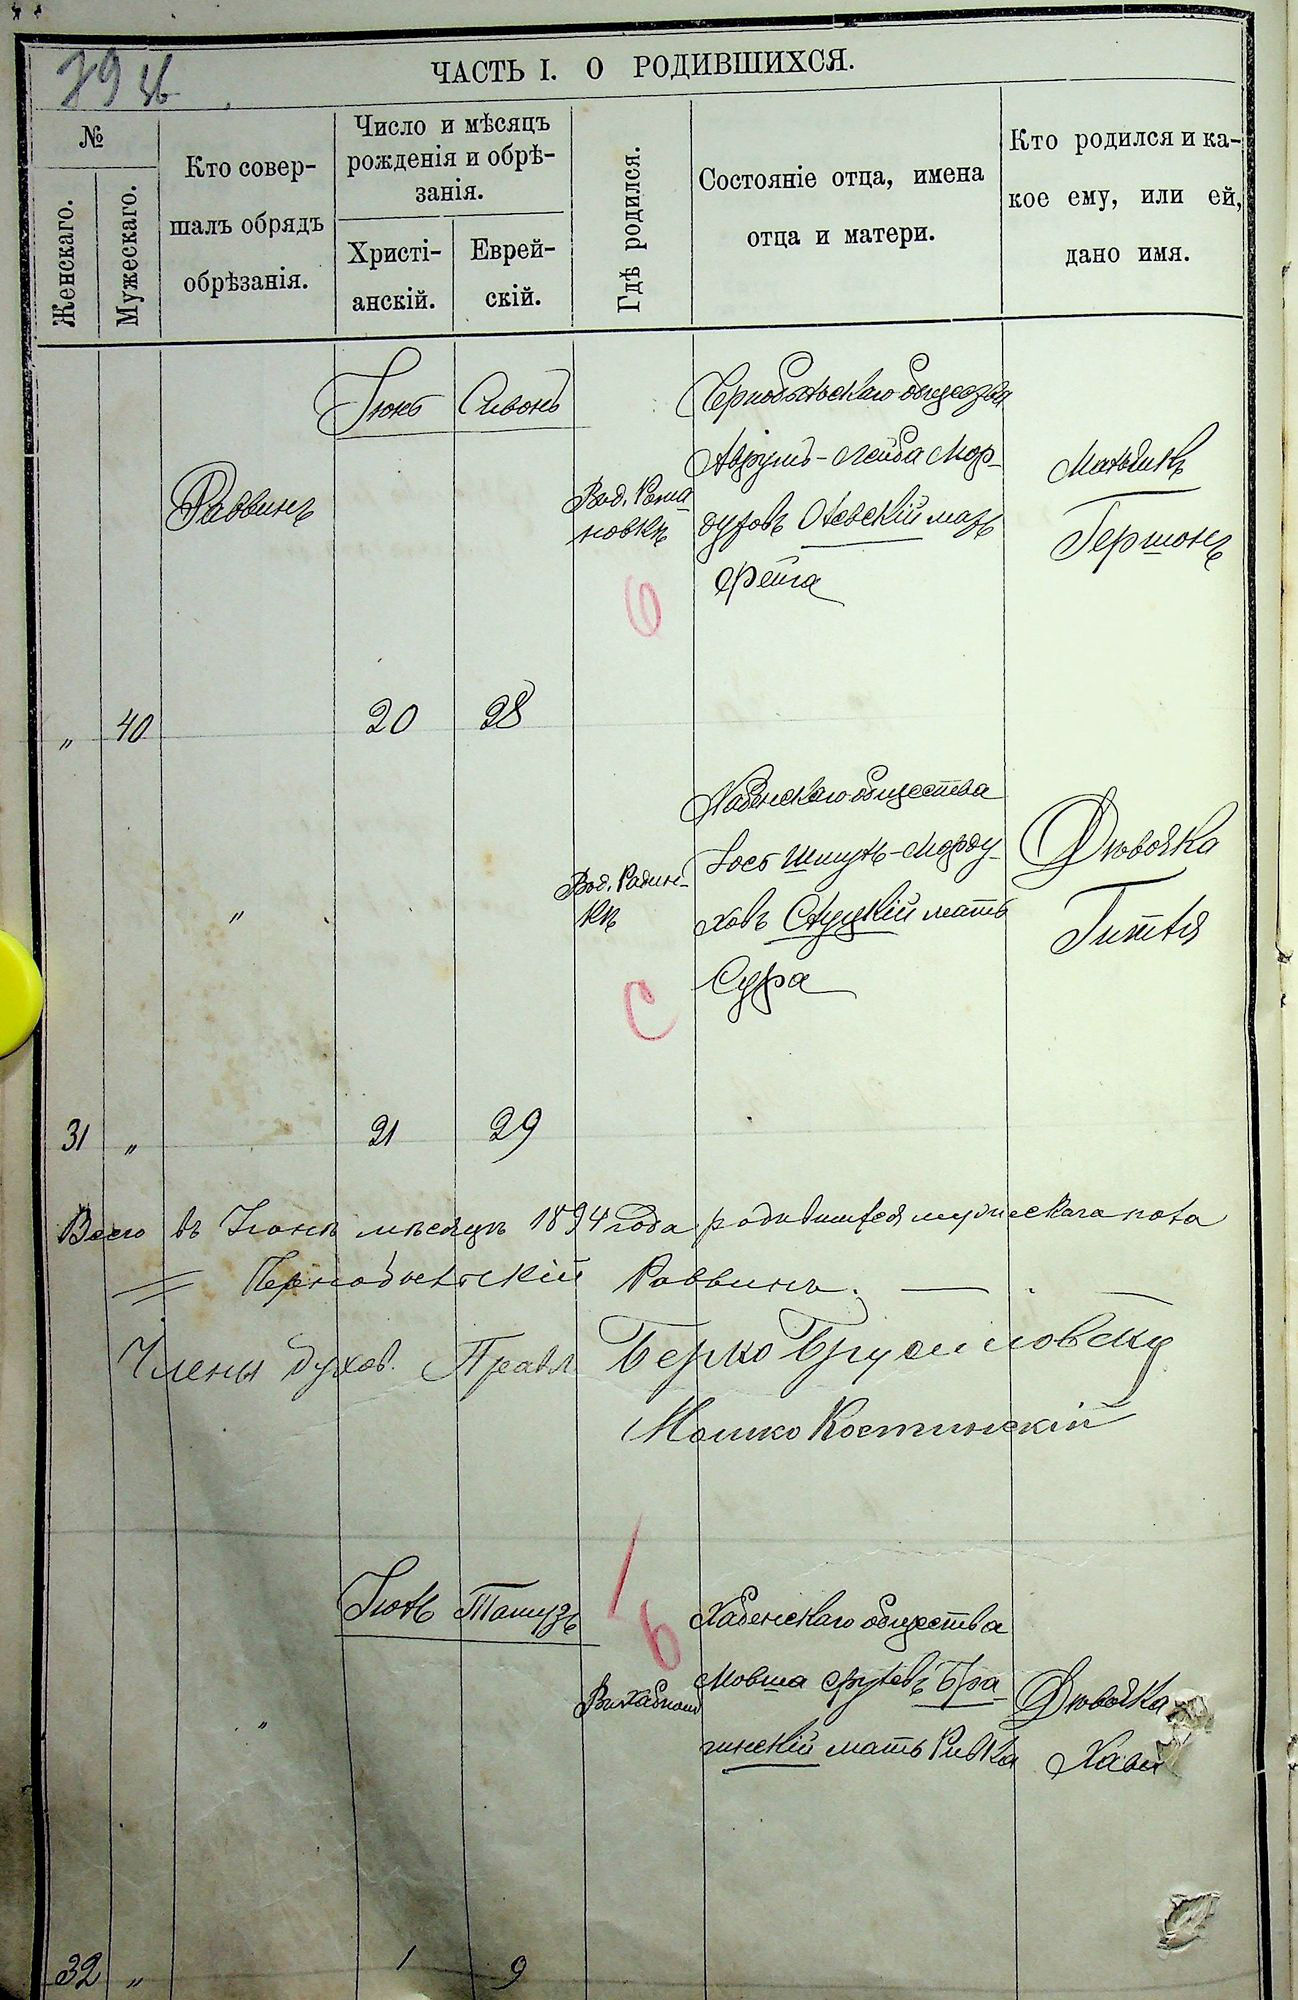 ЧАСТЬ I. О РОДИВШИХСЯ.
№
Женскаго.
Мужескаго.
Кто совер-
шалъ обрядъ
обрѣзанія.
Число и мѣсяцъ
рожденія и обрѣ-
занія.
Христі-
анскій.
Еврей-
скій.
Гдѣ родился.
Состояніе отца, имена
отца и матери.
Кто родился и ка-
кое ему, или ей,
дано имя.
Іюнь
Сивонъ
Раввинъ
Чернобыльскаго общества
Аврумъ-Лейба Мор-
духовъ мать
Фейга
Мальчикъ
Гершонъ
6
„ 40
20 28
„
Хабенскаго общества
Іось Шмуль-Морду-
ховъ Слуцкій мать
Сура
Дѣвочка
Гитля
С
31 „
21 29
Всего въ Іюнѣ мѣсяцѣ 1894 года родившихся мужескаго пола
Чернобыльскій Раввинъ.
Члены Духов. Правл. Берко Брусиловскій
Мошко Костинскій
Іюль
Тамузъ
„
Хабенскаго общества
Мовша Бра-
гинскій мать Ривка
Дѣвочка
Хая
Б
32 „
1 9